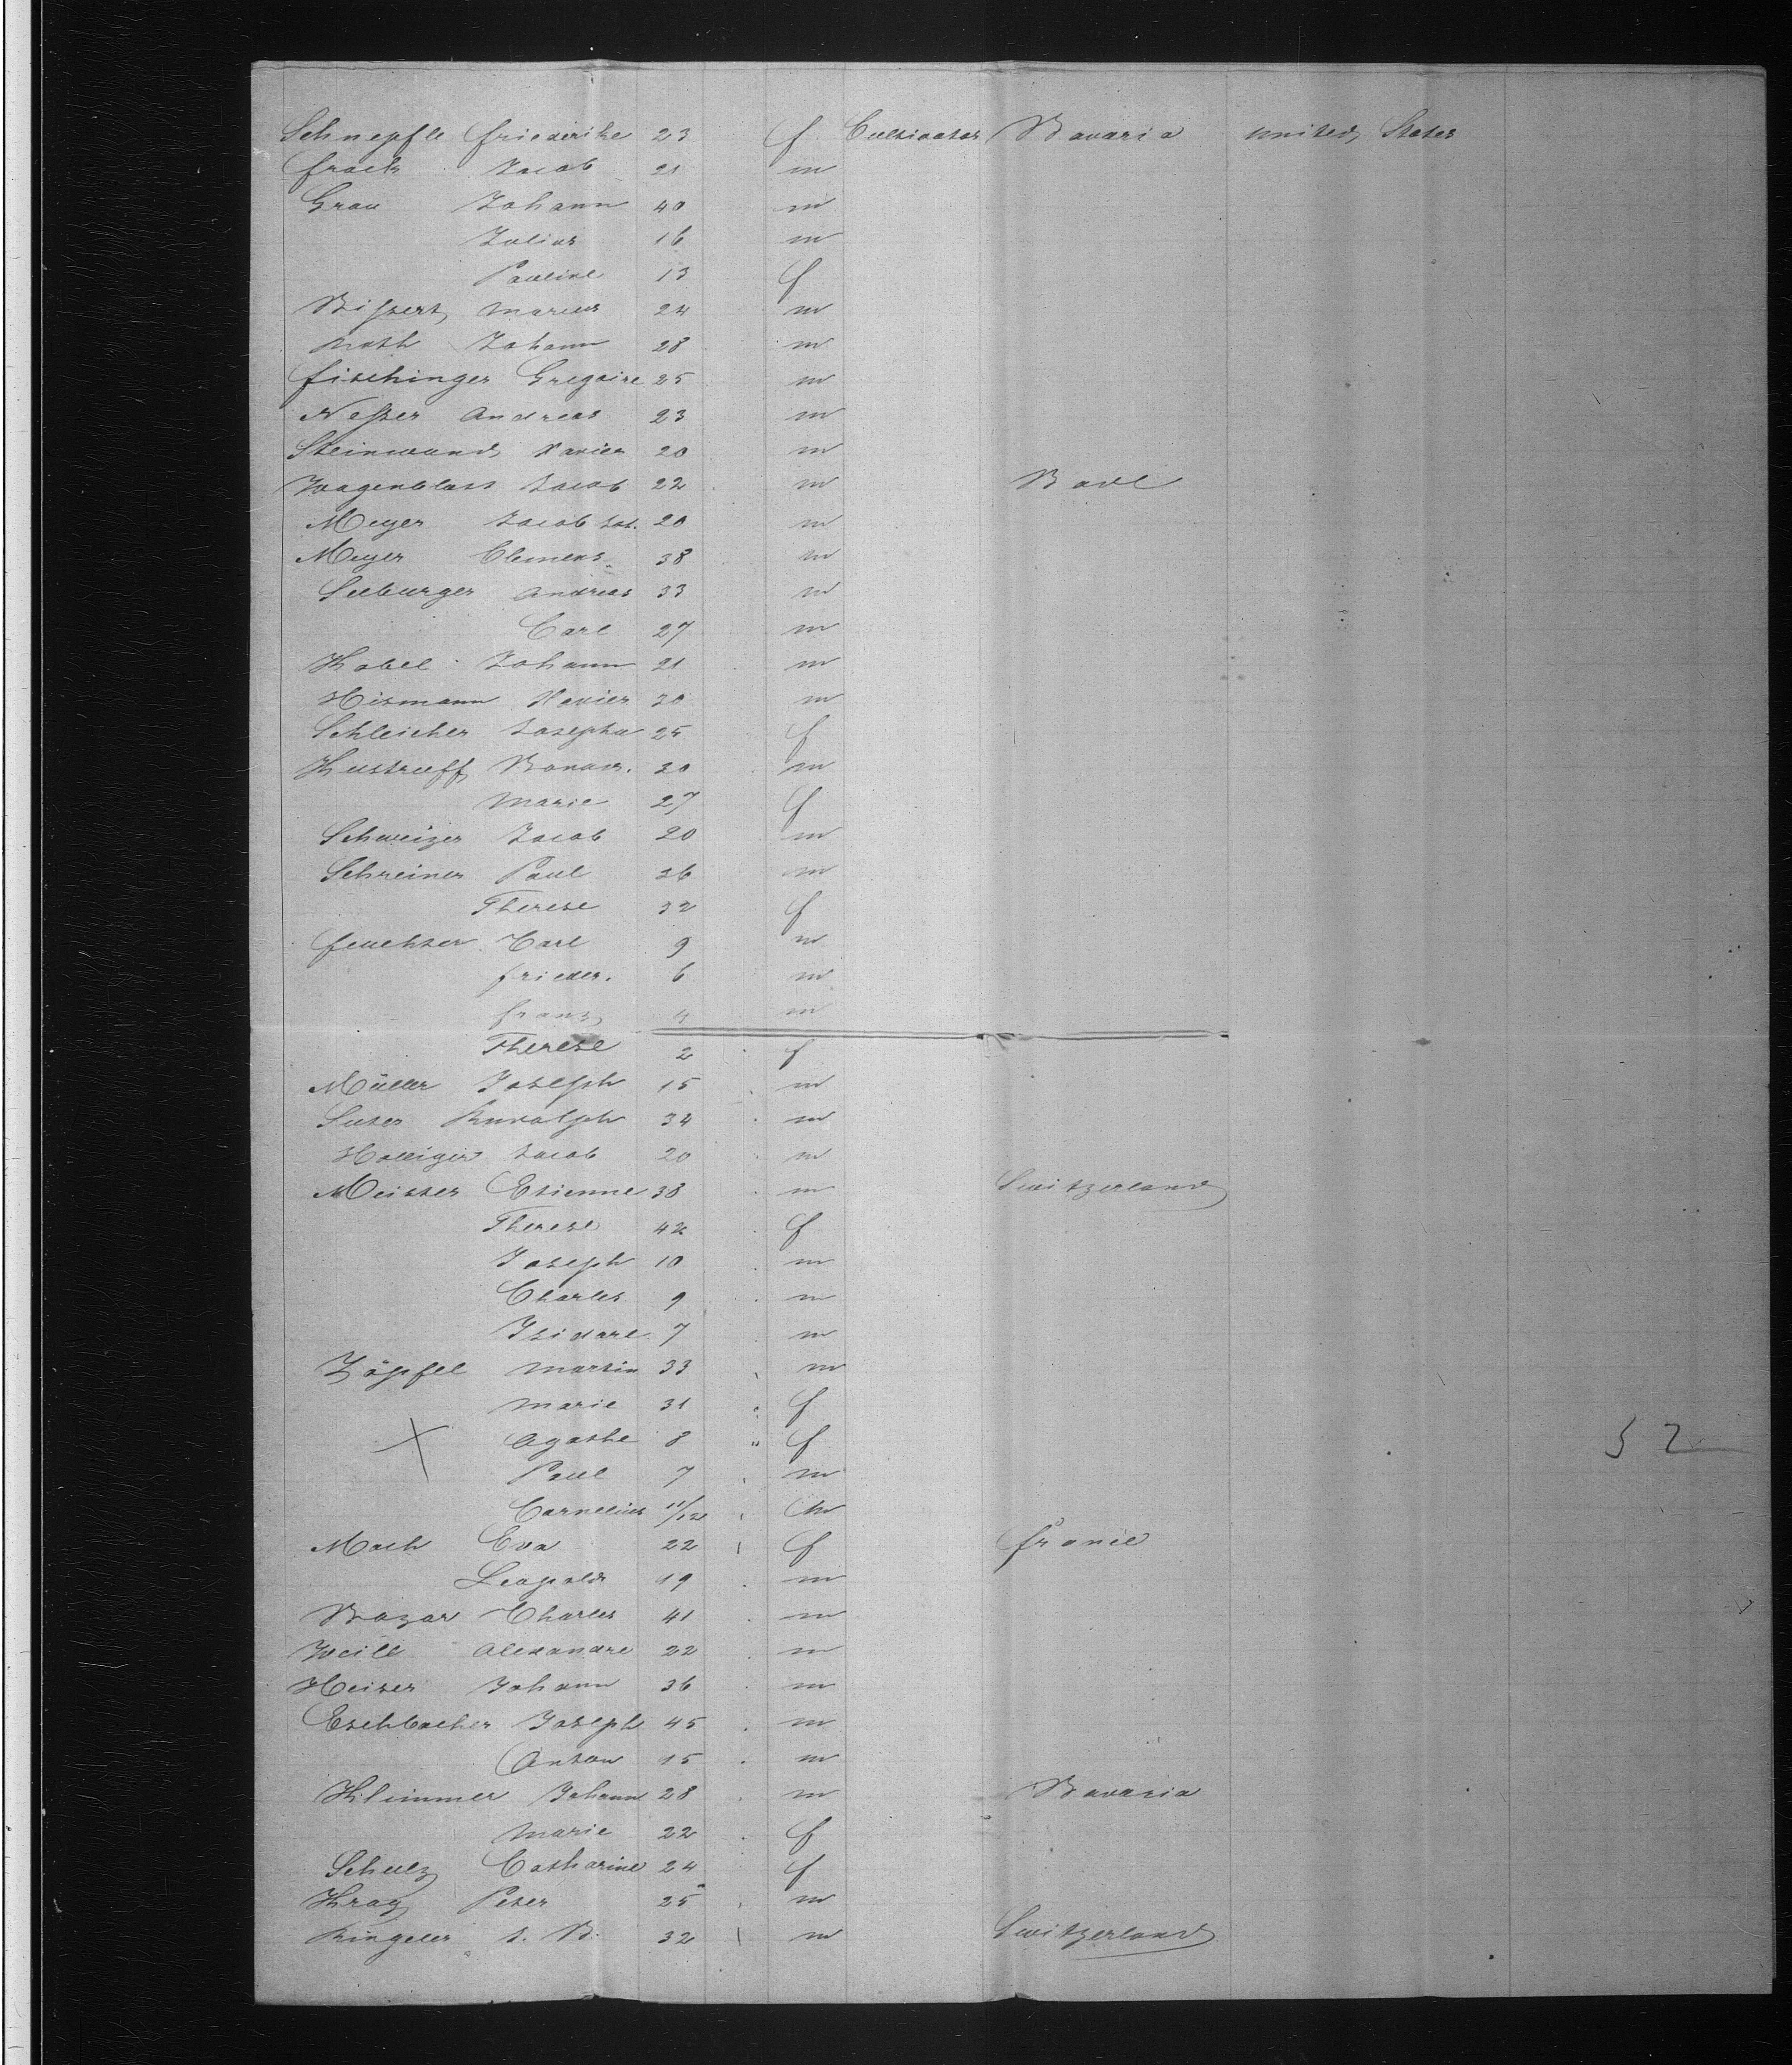 Schnepfle Friederike 23 f Cultivator Bavaria United States
Frack Jacob 21 m
Grau Johann 40 m
Julius 16 m
Pauline 13 f
Bissert Marcus 24 m
Johann 28 m
Fischinger Gregoire 25 m
Nesser Andreas 23 m
Steinwand Xavier 20 m
Wagenblass Jacob 22 m Bade
Meyer Jacob Jos. 20 m
Meyer Clemens 38 m
Seeburger Andreas 33 m
Carl 27 m
Kabel Johann 21 m
Hismann Xavier 30 m
Schleicher Josepha 25 f
Kustruff 30 m
Marie 27 f
Schweizer Jacob 20 m
Schreiner Paul 26 m
Therese 32 f
Feuchter Carl 9 m
Frieder. 6 m
Franz 4 m
Therese 2 f
Müller Joseph 15 m
Suter Rudolph 34 m
Holliger Jacob 20 m
Meister Etienne 38 m Switzerland
Therese 42 f
Joseph 10 m
Charles 9 m
Isidore 7 m
Zöpfel Martin 33 m
Marie 31 " f
X Agathe 8 " f 52
Paul 7 m
Cornelius 11/12 m
Moch Eva 22 f France
Leopold 19 m
Bazar Charles 41 m
Weill Alexandre 22 m
Heiser Johann 36 m
Eschbacher Joseph 45 m
Anton 15 m
Klimmer Johann 28 m Bavaria
Marie 22 f
Schulz Catharine 24 f
Kraz Peter 25 m
Ringeler J. B. 32 m Switzerland